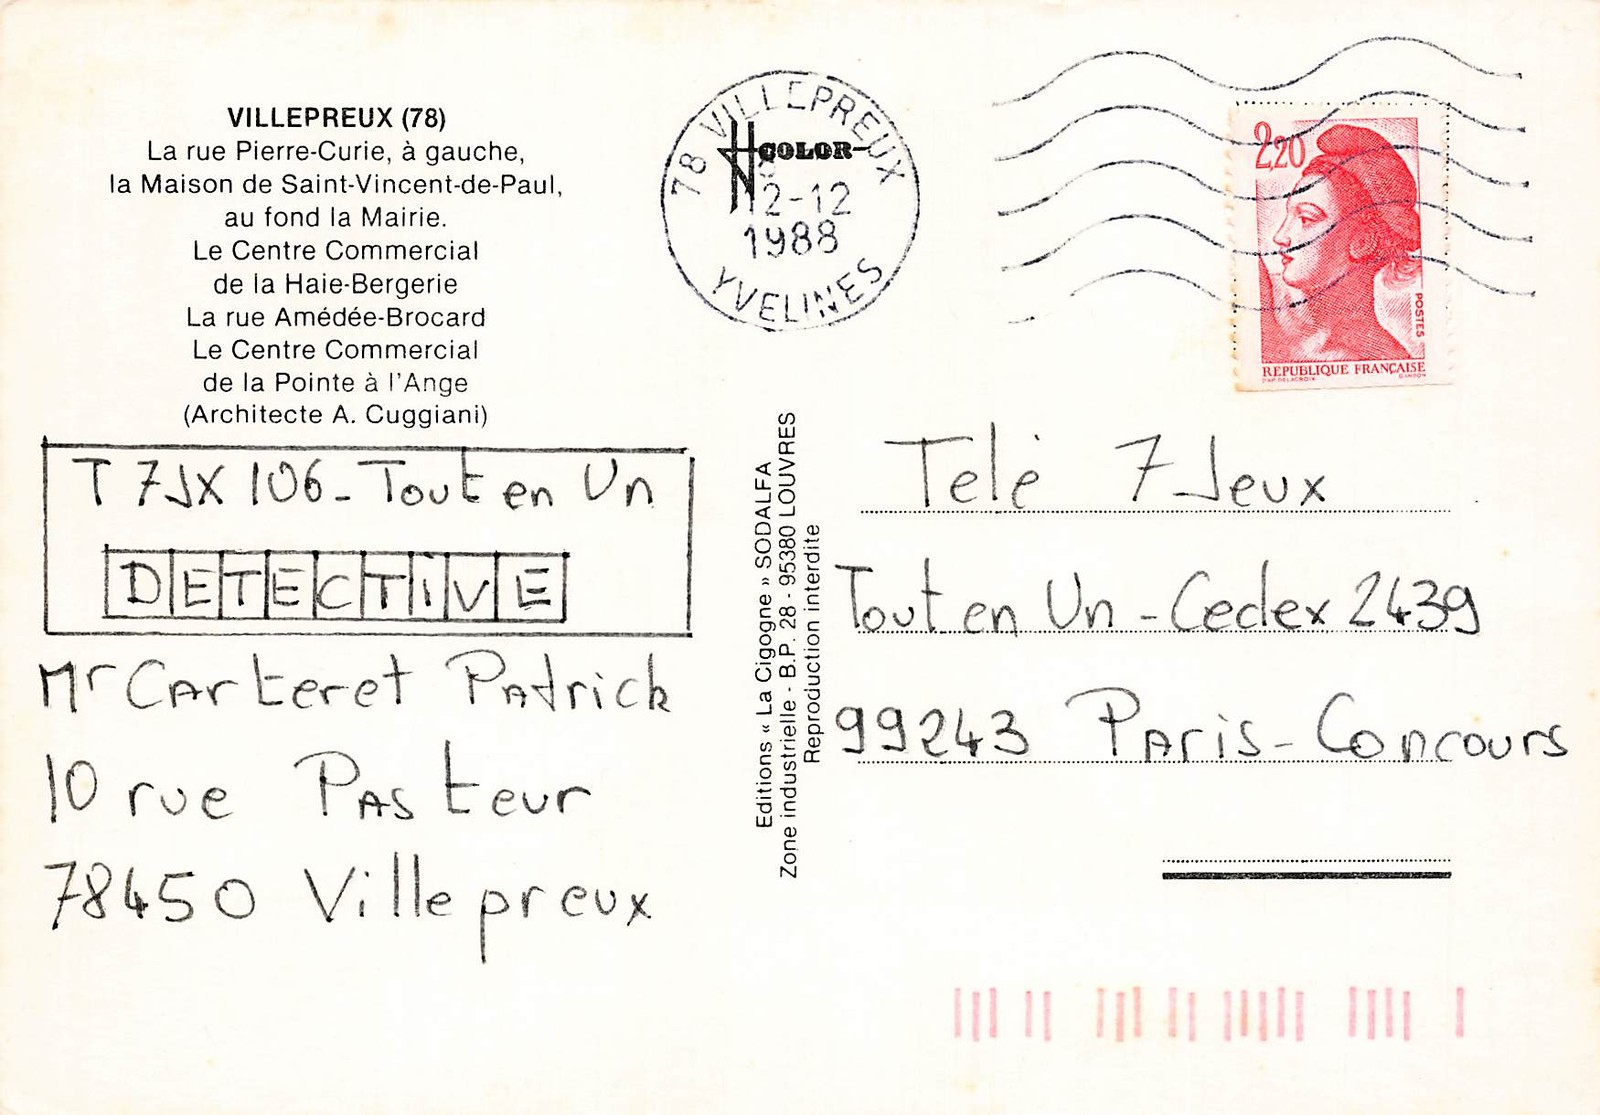 VILLEPREUX (78)
La rue Pierre-Curie, à gauche,
la Maison de Saint-Vincent-de-Paul,
au fond la Mairie.
Le Centre Commercial
de la Haie-Bergerie
La rue Amédée-Brocard
Le Centre Commercial
de la Pointe à l'Ange
(Architecte A. Cuggiani)
T 7JX 106 - Tout en Un
DETECTiVE
Mr Carteret Patrick
10 rue Pasteur
78450 Villepreux
78 VILLEPREUX
COLOR
12-12
1988
YVELINES
Editions « La Cigogne » SODALFA
Zone industrielle - B.P. 28 - 95380 LOUVRES
Reproduction interdite
2,20
POSTES
REPUBLIQUE FRANÇAISE
D'AP. DELACROIX GANDON
Telé 7 Jeux
Tout en Un - Cedex 2439
99243 Paris - Concours